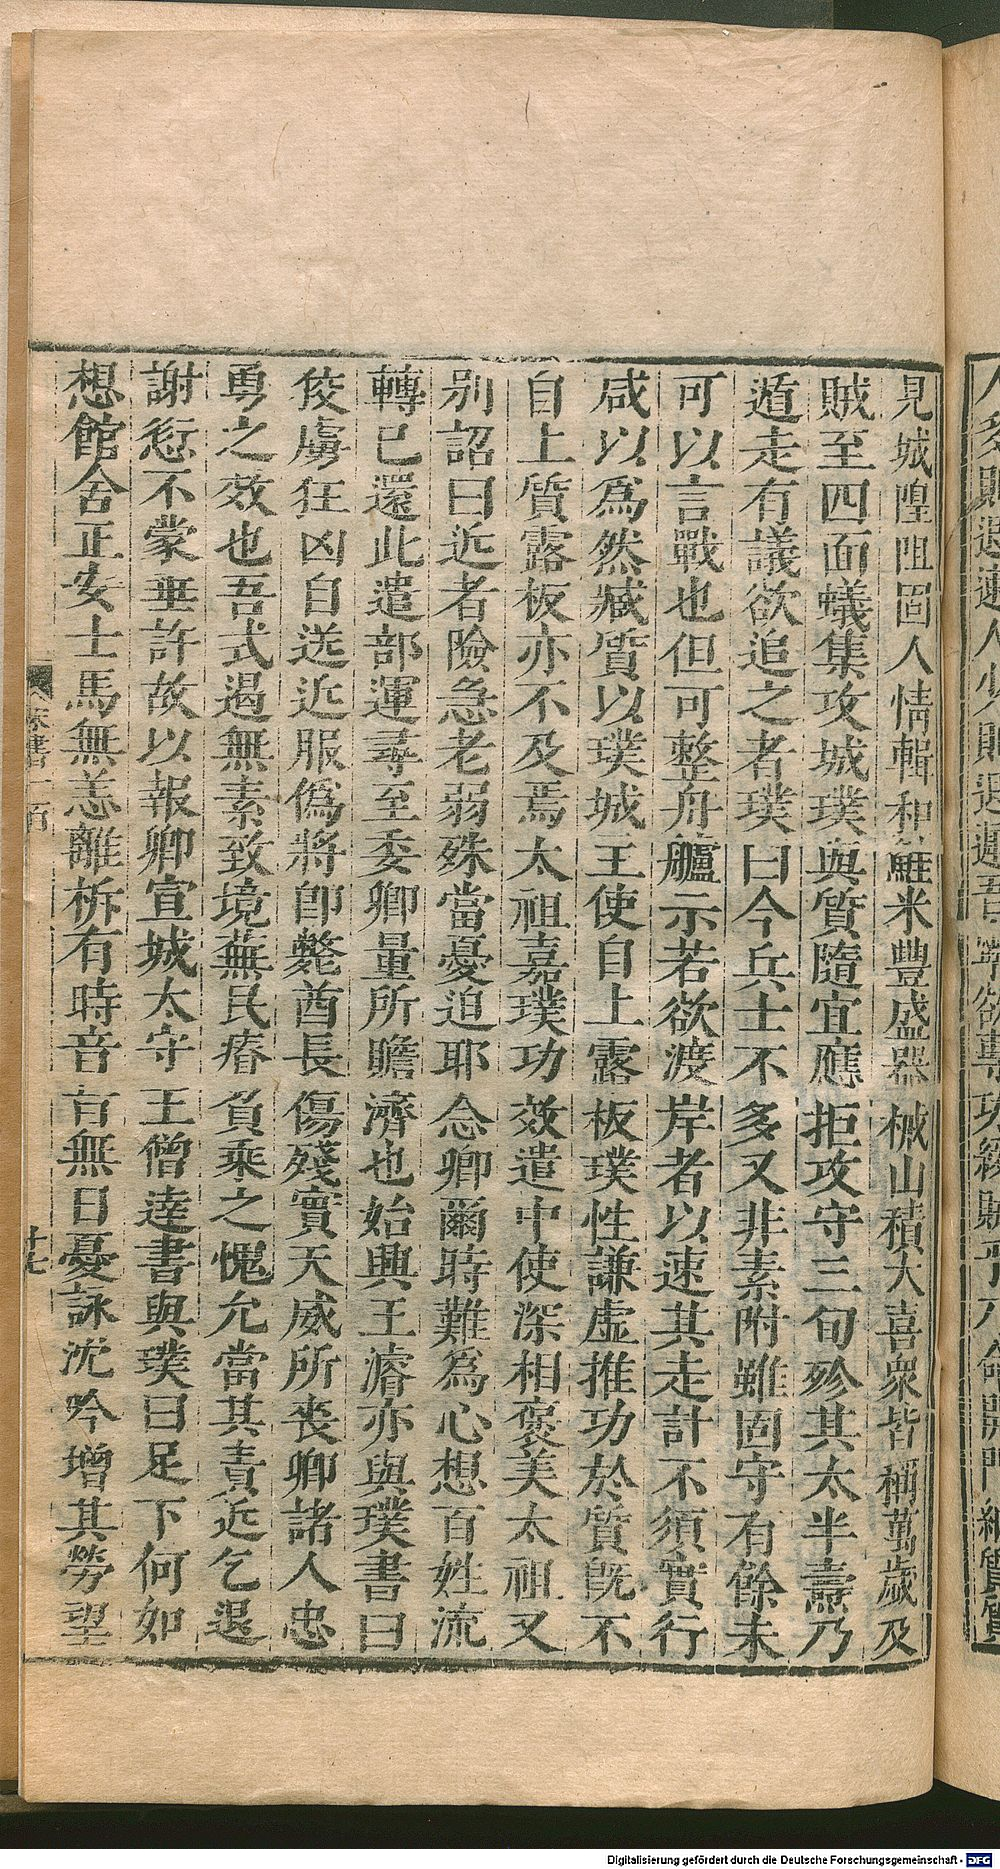 見城隍阻固人情輯和鮭米豐盛器械山積大喜衆皆稱萬歲及
賊至四面蟻集攻城璞與質隨宜應拒攻守三旬殄其太半燾乃
遁走有議欲追之者璞曰今兵士不多又非素附雖固守有餘未
可以言戰也但可整舟艫示若欲渡岸者以速其走計不須實行
咸以爲然臧質以璞城王使自上露板璞性謙虛推功於質旣不
自上質露板亦不及焉太祖嘉璞功效遣中使深相褒美太祖又
别詔曰近者險急老弱殊當憂迫耶念卿爾時難爲心想百姓流
轉已還此遣部運尋至委卿量所贍濟也始興王濬亦與璞書曰
狡虜狂凶自送近服僞將卽斃酋長傷殘實天威所喪卿諸人忠
勇之效也吾式遏無素致境蕪民瘠負乘之愧允當其責近乞退
謝愆不蒙垂許故以報卿宣城太守王僧達書與璞曰足下何如
想館舍正安士馬無恙離柝有時音旨無日憂詠沈吟增其勞望
宋書一百
十七
Digitalisierung gefördert durch die Deutsche Forschungsgemeinschaft - DFG